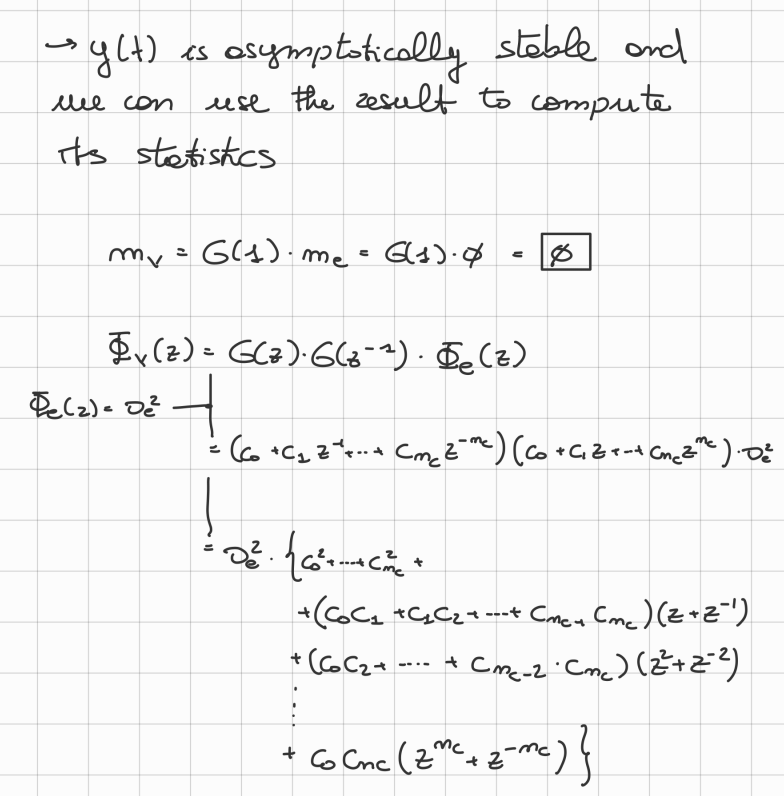 → y(t) is asymptotically stable and
we can use the result to compute
its statistics
m_v = G(1) · m_e = G(1) · ø = ø
Φ_v(z) = G(z) · G(z^{-1}) · Φ_e(z)
Φ_e(z) = σ_e^2
= (c_0 + c_1 z^{-1} + ... + c_{n_c} z^{-n_c}) (c_0 + c_1 z + ... + c_{n_c} z^{n_c}) · σ_e^2
= σ_e^2 · { c_0^2 + ... + c_{n_c}^2 +
+ (c_0 c_1 + c_1 c_2 + ... + c_{n_c-1} c_{n_c}) (z + z^{-1})
+ (c_0 c_2 + ... + c_{n_c-2} · c_{n_c}) (z^2 + z^{-2})
⋮
+ c_0 c_{n_c} (z^{n_c} + z^{-n_c}) }